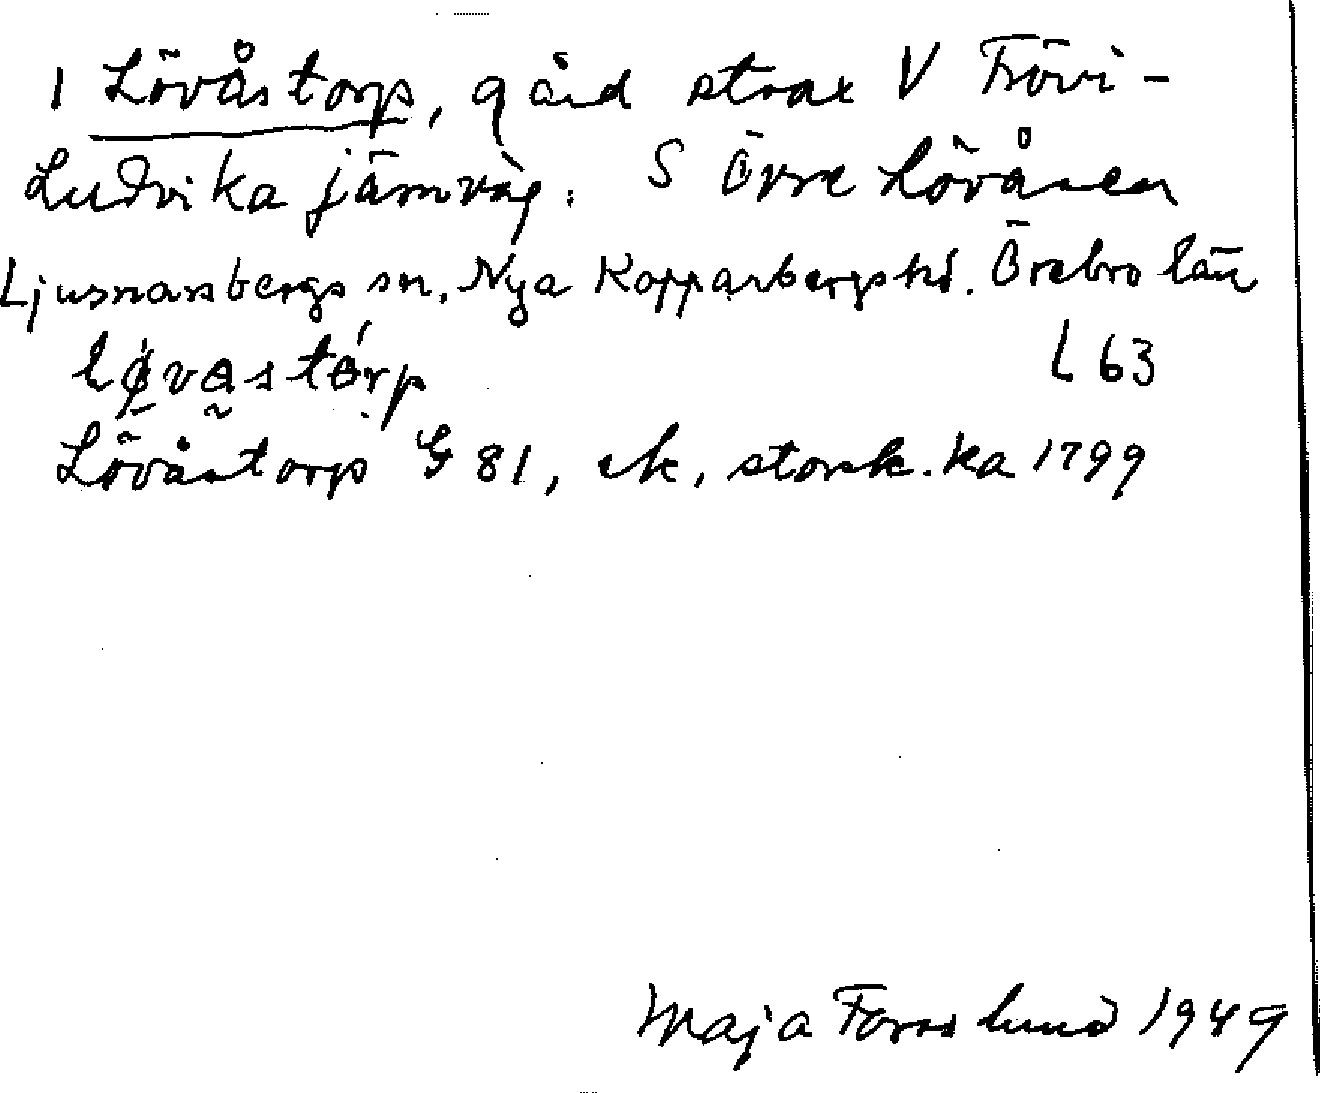 1 Lövåstorp, gård strax V Frövi-
Ludvika järnväg. S Övre Lövåsen
Ljusnarsbergs sn, Nya Kopparbergs hd. Örebro län
L 63
Lövåstorp G 81, ek, storsk. ka 1799
Maja Forsslund 1949